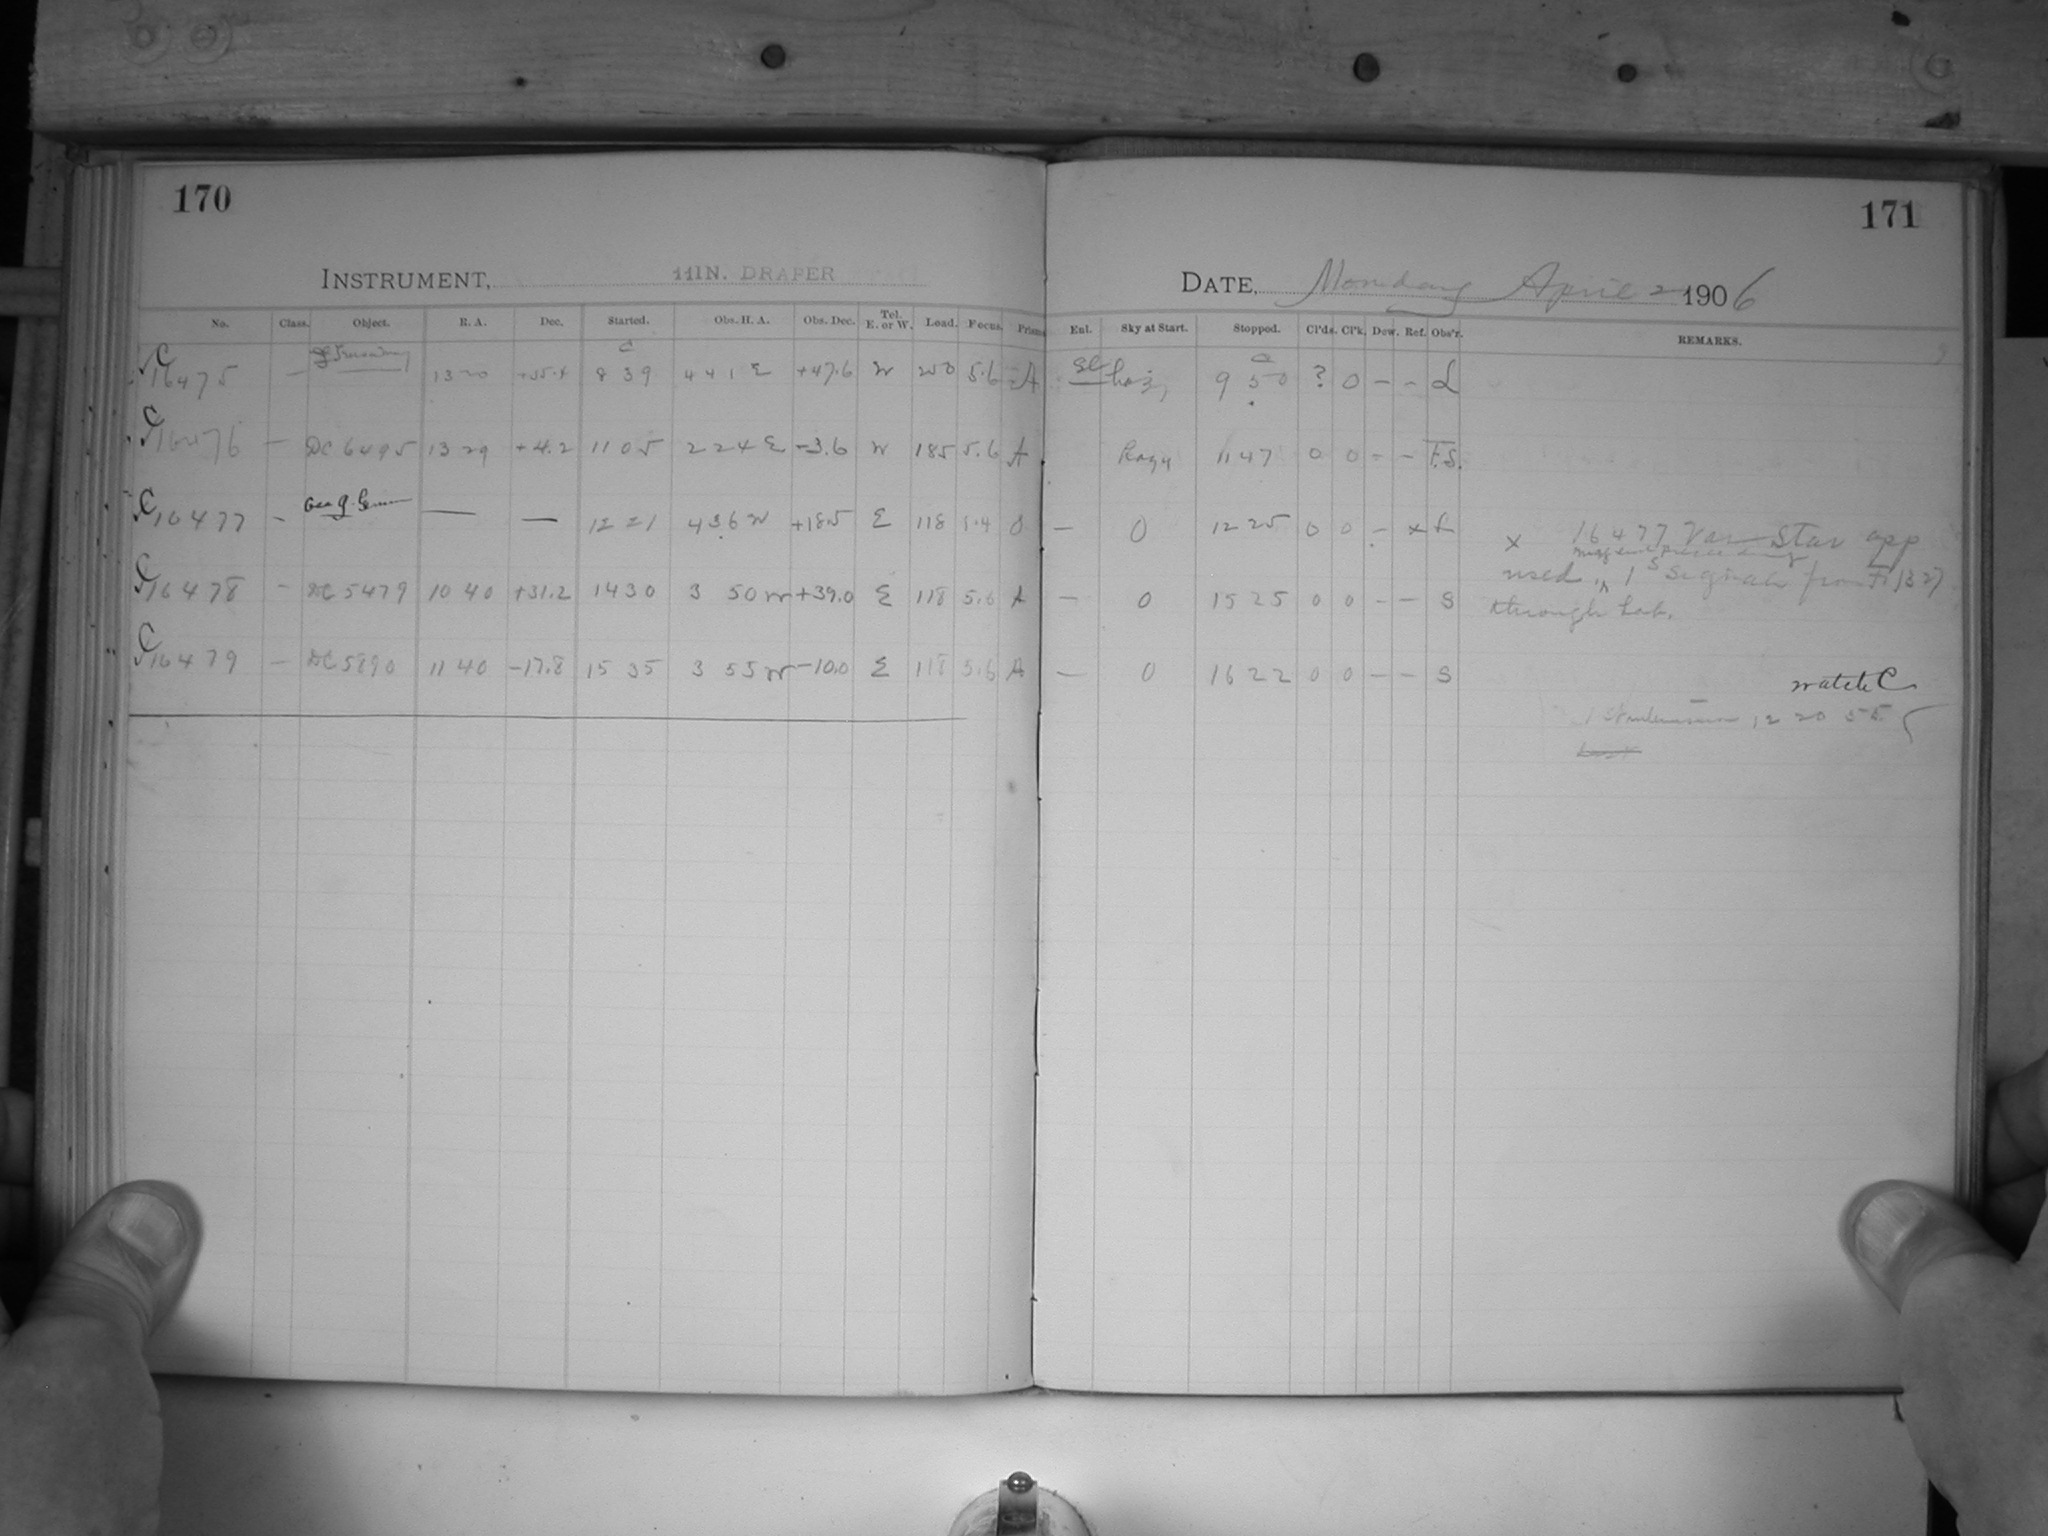 170
171
INSTRUMENT, 11IN. DRAPER
DATE, Monday April 2 1906
No. Class. Object. R. A. Dec. Started. Obs. H. A. Obs. Dec. Tel. E. or W. Load. Focus. Prism. Enl. Sky at Start. Stopped. Cl'ds. Cl'k. Dew. Ref. Obs'r. REMARKS.
C 16475 — 13 20 +35.4 8 39 4 41 E +47.6 W 5.6 A Sl hazy 9 50 ? 0 - - L
C 16476 — DC 6495 13 29 +4.2 11 05 2 24 E -3.6 W 185 5.6 A Hazy 11 47 0 0 - - F.S.
C 16477 - — — 12 21 4 36 W +18.5 E 118 5.4 0 — 0 12 25 0 0 - x L
x 16477 Var Star app
used 1 s signals from
through Lab.
C 16478 — DC 5479 10 40 +31.2 14 30 3 50 W +39.0 E 118 5.6 A — 0 15 25 0 0 - - S
C 16479 — DC 5890 11 40 -17.8 15 35 3 55 W -10.0 E 118 5.6 A — 0 16 22 0 0 - - S
watch C
12 20 55